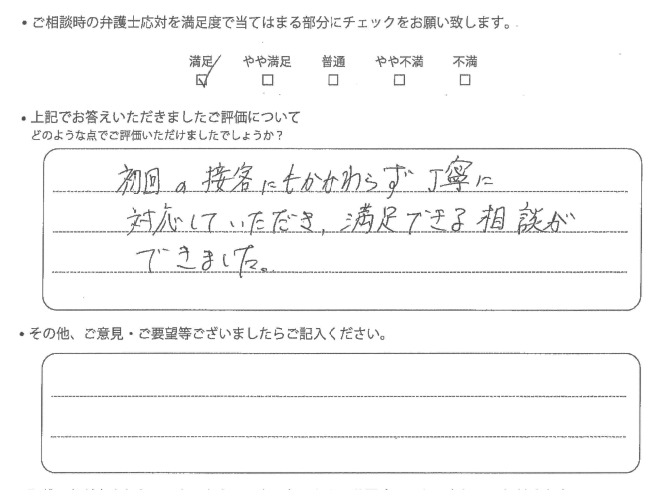 ・ご相談時の弁護士応対を満足度で当てはまる部分にチェックをお願い致します。
満足 やや満足 普通 やや不満 不満
☑ ☐ ☐ ☐ ☐
・上記でお答えいただきましたご評価について
どのような点でご評価いただけましたでしょうか？
初回の接客にもかかわらず丁寧に
対応していただき、満足できる相談が
できました。
・その他、ご意見・ご要望等ございましたらご記入ください。